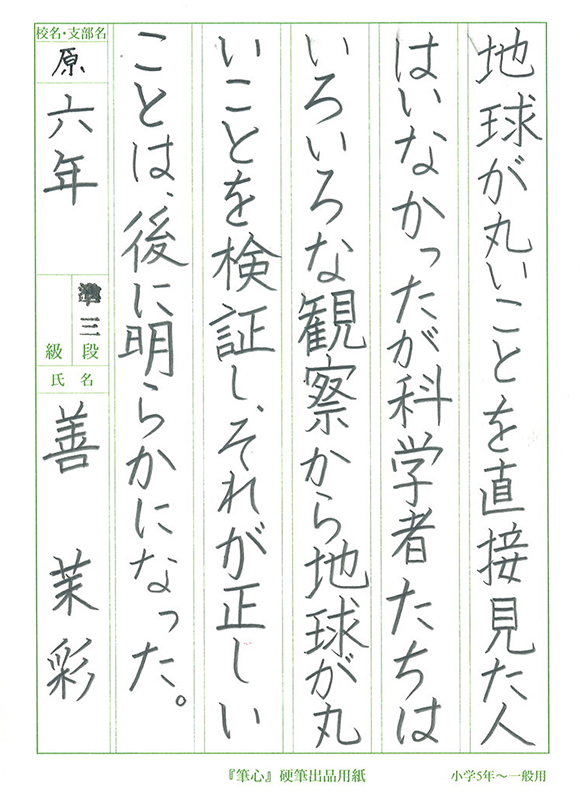 地球が丸いことを直接見た人
はいなかったが科学者たちは
いろいろな観察から地球が丸
いことを検証し、それが正しい
ことは、後に明らかになった。
校名・支部名
原
六年
準三段
級
氏名
善 茉彩
『筆心』硬筆出品用紙
小学5年～一般用